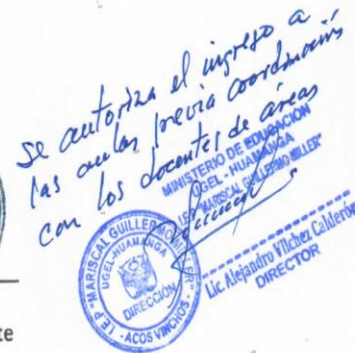 Se autoriza el ingreso a
las aulas previa coordinación
con los docentes de áreas
MINISTERIO DE EDUCACIÓN
UGEL - HUAMANGA
I.E.P "MARISCAL GUILLERMO MILLER"
Lic. Alejandro Vilchez Calderón
DIRECTOR
I.E.P "MARISCAL GUILLERMO
UGEL-HUAMANGA
DIRECCIÓN
- ACOS VINCHOS -
te